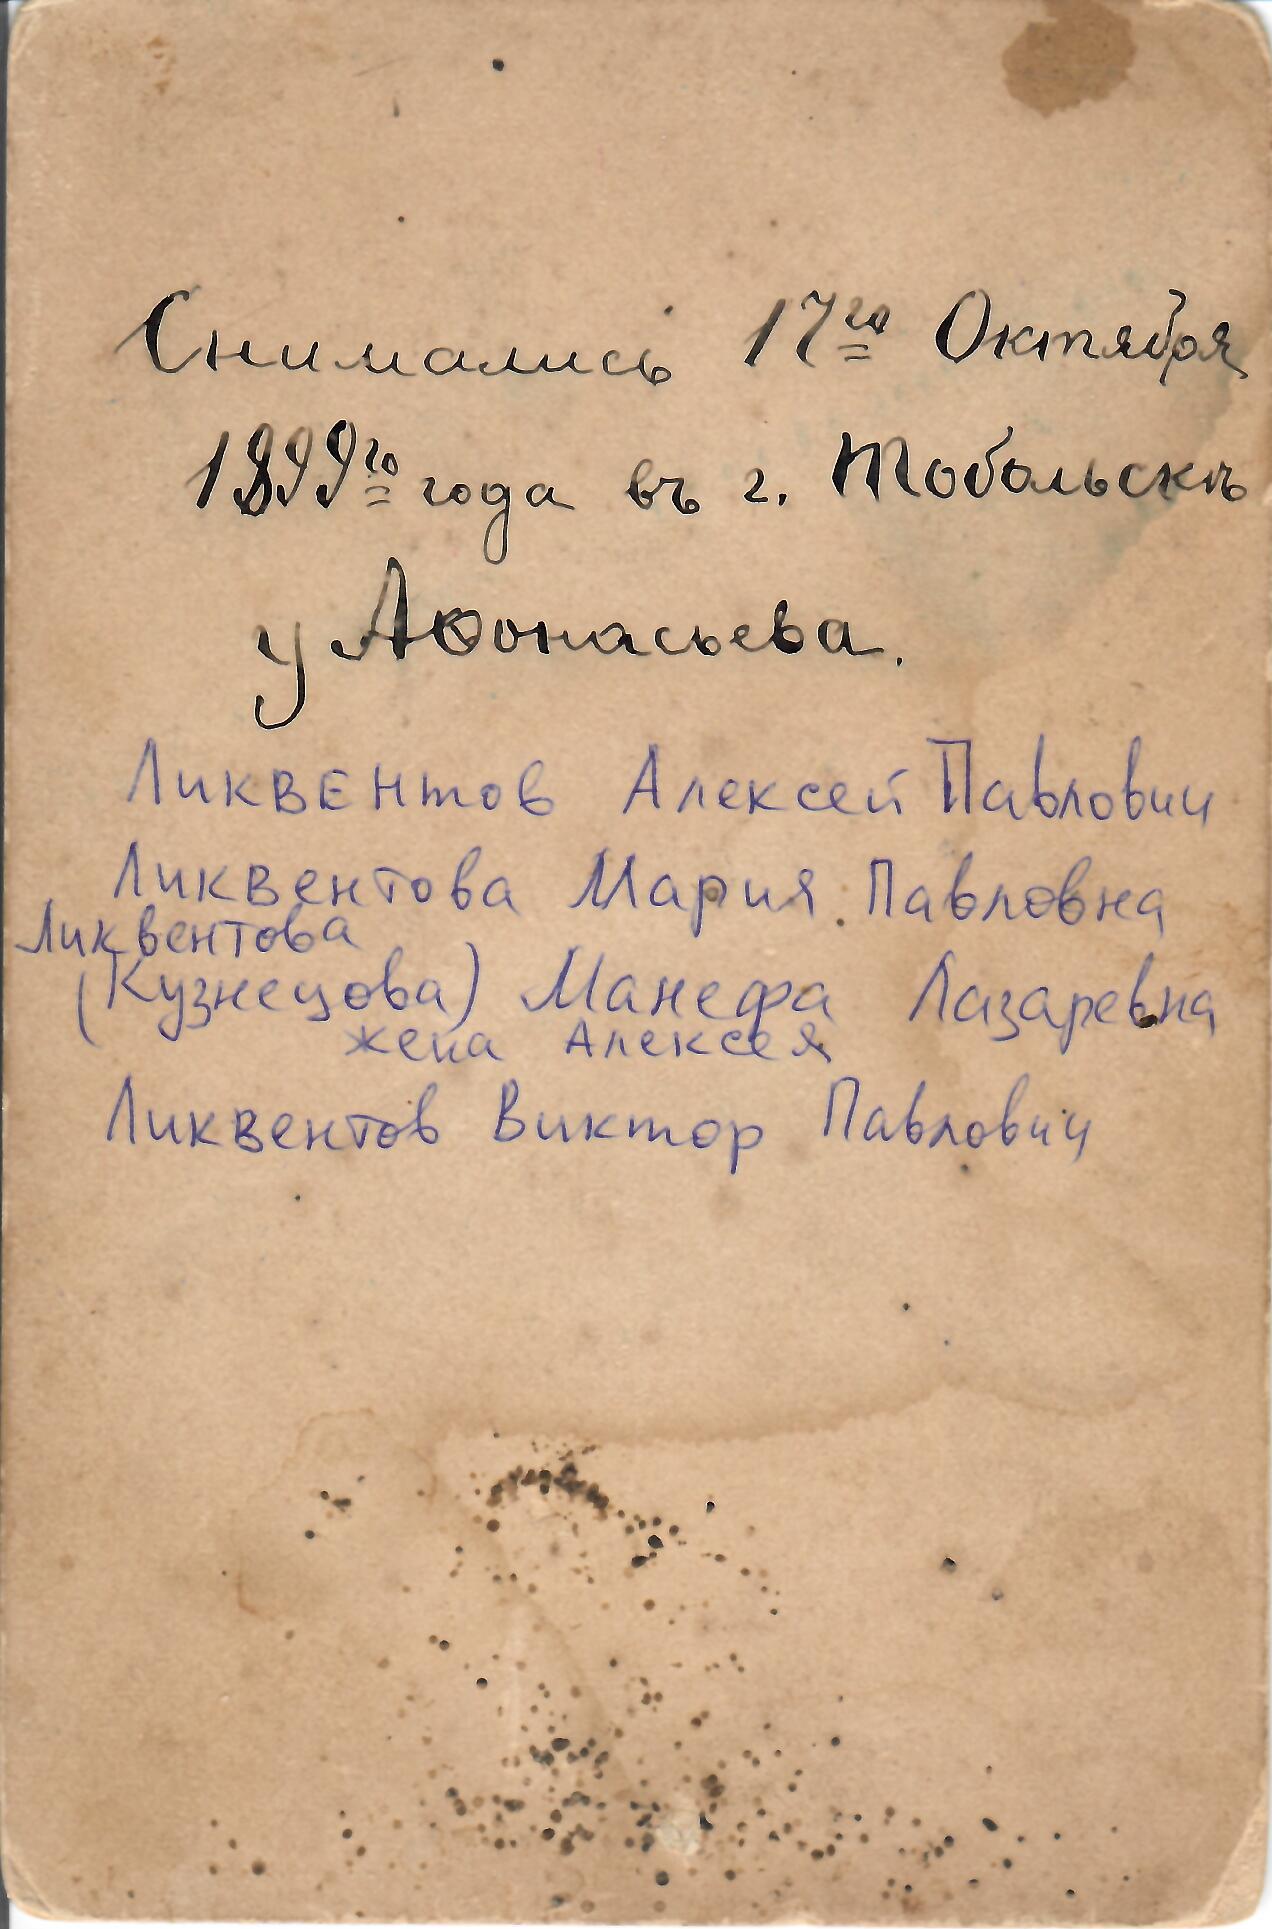 Снимались 17го Октября
1899го года въ г. Тобольскѣ
у Аѳонасьева.
Ликвентов Алексей Павлович
Ликвентова Мария Павловна
Ликвентова
(Кузнецова) Манефа Лазаревна
жена Алексея
Ликвентов Виктор Павлович